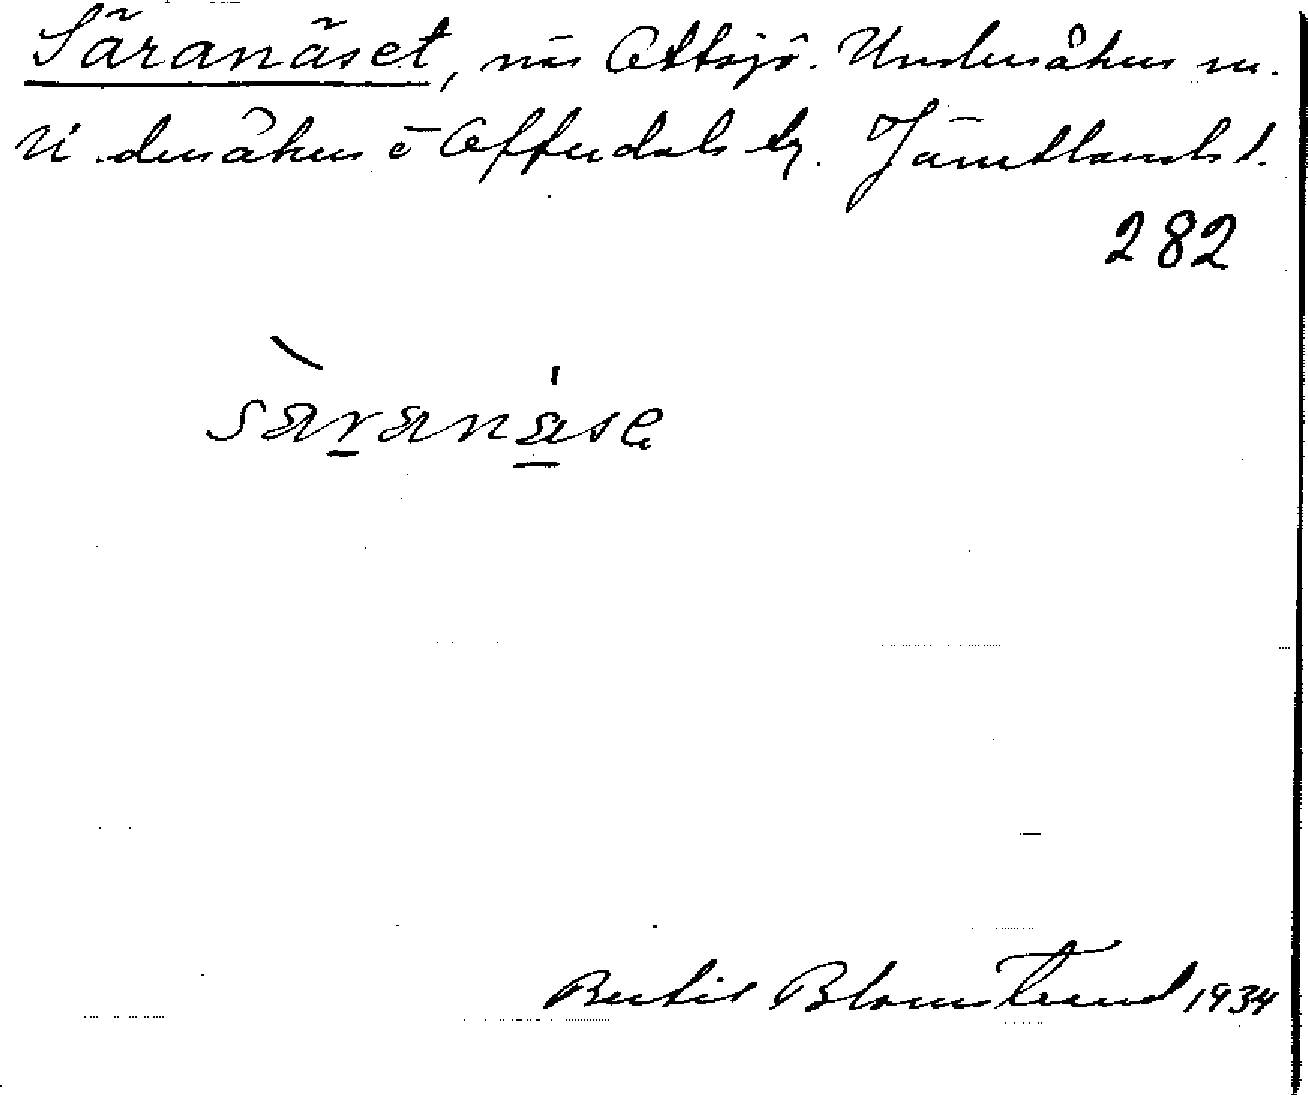 Säranäset, näs Ottsjö. Undersåkers sn.
Undersåkers o Offerdals tg. Jämtlands l.
282
säranäse
Bertil Blomstrand 1934